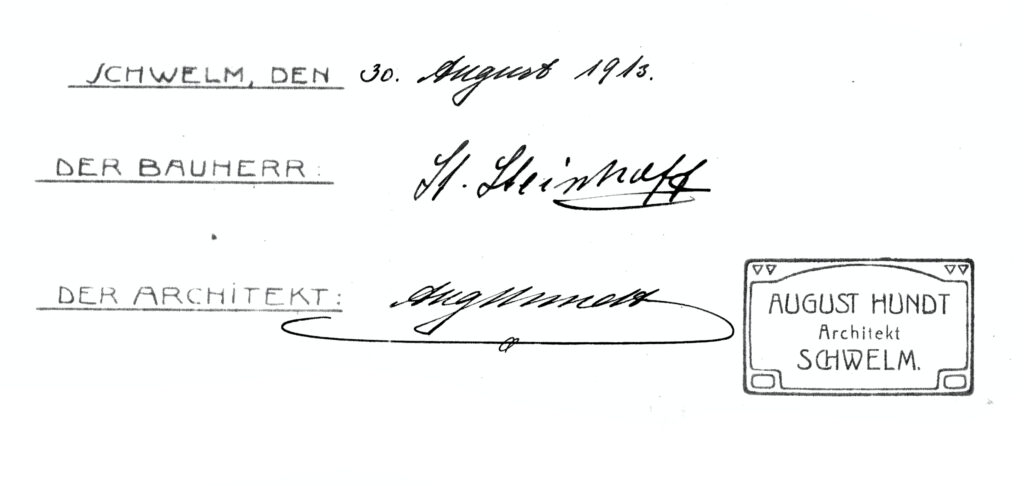 SCHWELM, DEN 30. August 1913.
DER BAUHERR: St. Steinhoff
DER ARCHITEKT: Aug Hundt
AUGUST HUNDT
Architekt
SCHWELM.